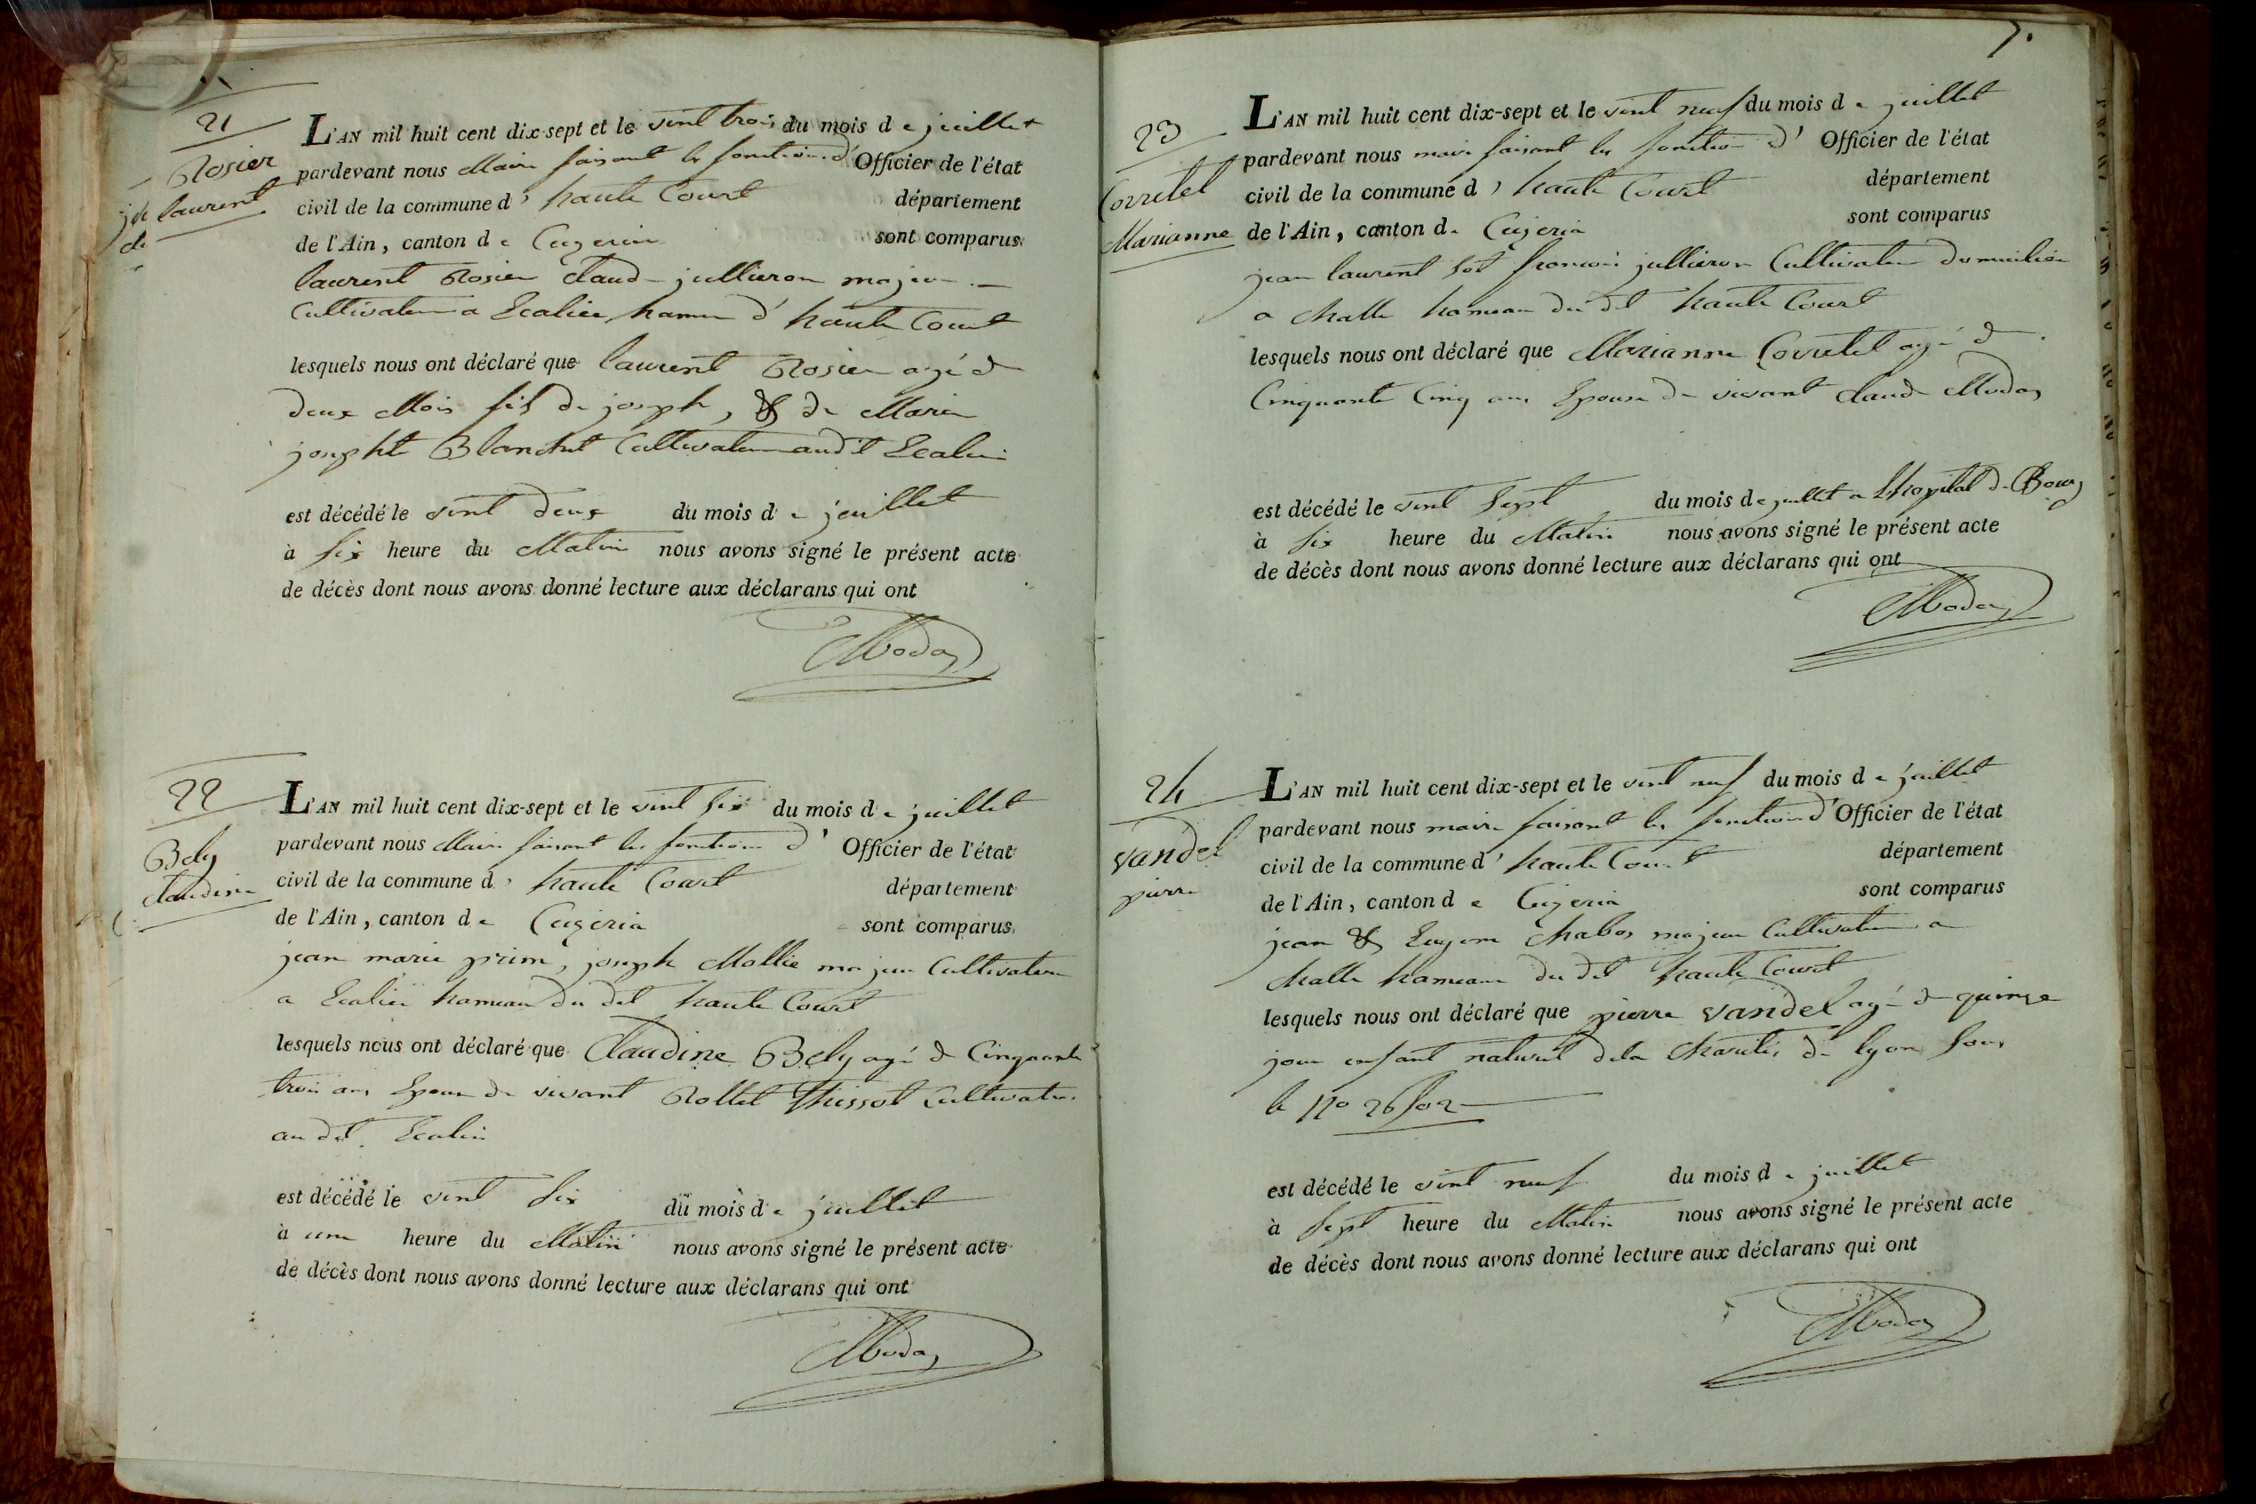 21
Rosier
laurent
L'AN mil huit cent dix-sept et le vint trois du mois d e juillet
pardevant nous Maire faisant les fonctions d' Officier de l'état
civil de la commune d' haute Court département
de l'Ain, canton d e Ceyzeria sont comparus
laurent Rosier Claude jullieron majeur
Cultivateur a hameau d' haute Court
lesquels nous ont déclaré que laurent Rosier agé de
deux Mois fils de joseph, & de Marie
josephte Blanchet Cultivateur audit
est décédé le vint deux du mois d e juillet
à six heure du Matin nous avons signé le présent acte
de décès dont nous avons donné lecture aux déclarans qui ont
22
Bely
Claudine
L'AN mil huit cent dix-sept et le vint six du mois d e juillet
pardevant nous Maire faisant les fonctions d' Officier de l'état
civil de la commune d' haute Court département
de l'Ain, canton d e Ceyzeria sont comparus
jean marie prim, joseph Mollie majeur Cultivateur
a hameau du dit haute Court
lesquels nous ont déclaré que Claudine Bely agé de Cinquante
trois ans Epouse de vivant Rollet Cultivateur
au dit
est décédé le vint six du mois d e juillet
à une heure du Matin nous avons signé le présent acte
de décès dont nous avons donné lecture aux déclarans qui ont
7.
23
Corretel
Marianne
L'AN mil huit cent dix-sept et le vint neuf du mois d e juillet
pardevant nous maire faisant les fonction d' Officier de l'état
civil de la commune d' haute Court département
de l'Ain, canton d e Ceyzeria sont comparus
jean laurent francois jullieron Cultivateur domicilié
a Challe hameau du dit haute Court
lesquels nous ont déclaré que Marianne Corretel agé de
Cinquante Cinq ans Epouse de vivant Claude
est décédé le vint sept du mois d e juillet a Lhopital de Bourg
à six heure du Matin nous avons signé le présent acte
de décès dont nous avons donné lecture aux déclarans qui ont
24
vandel
pierre
L'AN mil huit cent dix-sept et le vint neuf du mois d e juillet
pardevant nous maire faisant les fonction d' Officier de l'état
civil de la commune d' haute Court département
de l'Ain, canton d e Ceyzeria sont comparus
jean & majeur Cultivateur a
Challe hameau du dit haute Court
lesquels nous ont déclaré que pierre vandel agé de quinze
jour enfant naturel dela charité de lyon sous
le no
est décédé le vint neuf du mois d e juillet
à sept heure du Matin nous avons signé le présent acte
de décès dont nous avons donné lecture aux déclarans qui ont